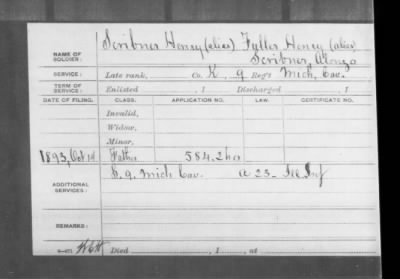 Scribner Henry (alias) Fuller Henry (alias)
NAME OF SOLDIER: Scribner, Alonzo
SERVICE: Late rank, Co. K, 9 Reg't Mich. Cav.
TERM OF SERVICE: Enlisted , 1 Discharged , 1
DATE OF FILING. CLASS. APPLICATION NO. LAW. CERTIFICATE NO.
Invalid,
Widow,
Minor,
1893, Oct 14 Father 584.2
ADDITIONAL SERVICES: S. 9. Mich Cav. A 23- Ill Inf
REMARKS:
Died , 1 , at